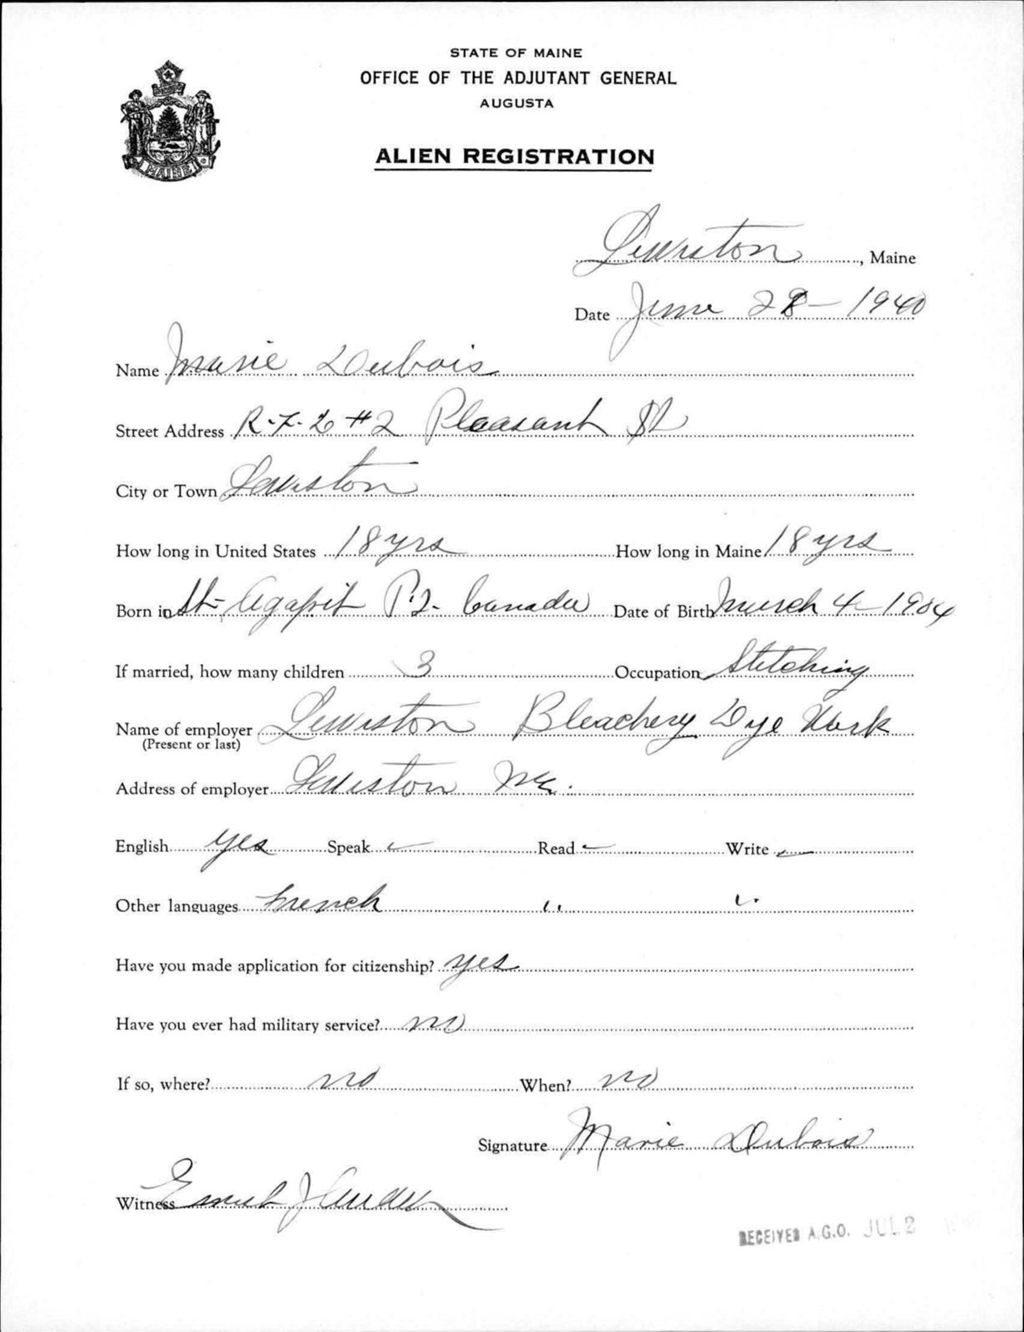 STATE OF MAINE
OFFICE OF THE ADJUTANT GENERAL
AUGUSTA
ALIEN REGISTRATION
MAINE
Lewiston, Maine
Date June 28 - 1940
Name Marie Dubois
Street Address R.F.D #2 Pleasant St
City or Town Lewiston
How long in United States 18 yrs How long in Maine 18 yrs
Born in St-Agapit P.Q. Canada Date of Birth March 4 - 1904
If married, how many children 3 Occupation Stitching
Name of employer Lewiston Bleachery Dye Work
(Present or last)
Address of employer Lewiston Me.
English yes Speak ✓ Read ✓ Write ✓
Other languages French " "
Have you made application for citizenship? yes
Have you ever had military service? no
If so, where? no When? no
Signature Marie Dubois
Witness
RECEIVED A.G.O. JUL 2